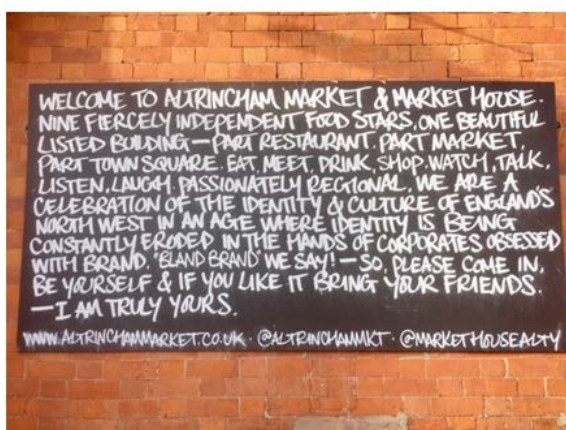 WELCOME TO ALTRINCHAM MARKET & MARKET HOUSE.
NINE FIERCELY INDEPENDENT FOOD STARS, ONE BEAUTIFUL
LISTED BUILDING — PART RESTAURANT. PART MARKET,
PART TOWN SQUARE. EAT, MEET, DRINK, SHOP. WATCH, TALK,
LISTEN, LAUGH. PASSIONATELY REGIONAL, WE ARE A
CELEBRATION OF THE IDENTITY & CULTURE OF ENGLAND'S
NORTH WEST IN AN AGE WHERE IDENTITY IS BEING
CONSTANTLY ERODED IN THE HANDS OF CORPORATES OBSESSED
WITH BRAND. "BLAND BRAND" WE SAY! — SO, PLEASE COME IN,
BE YOURSELF & IF YOU LIKE IT BRING YOUR FRIENDS.
— I AM TRULY YOURS.
WWW.ALTRINCHAMMARKET.CO.UK · @ALTRINCHAMMKT · @MARKETHOUSEALTY